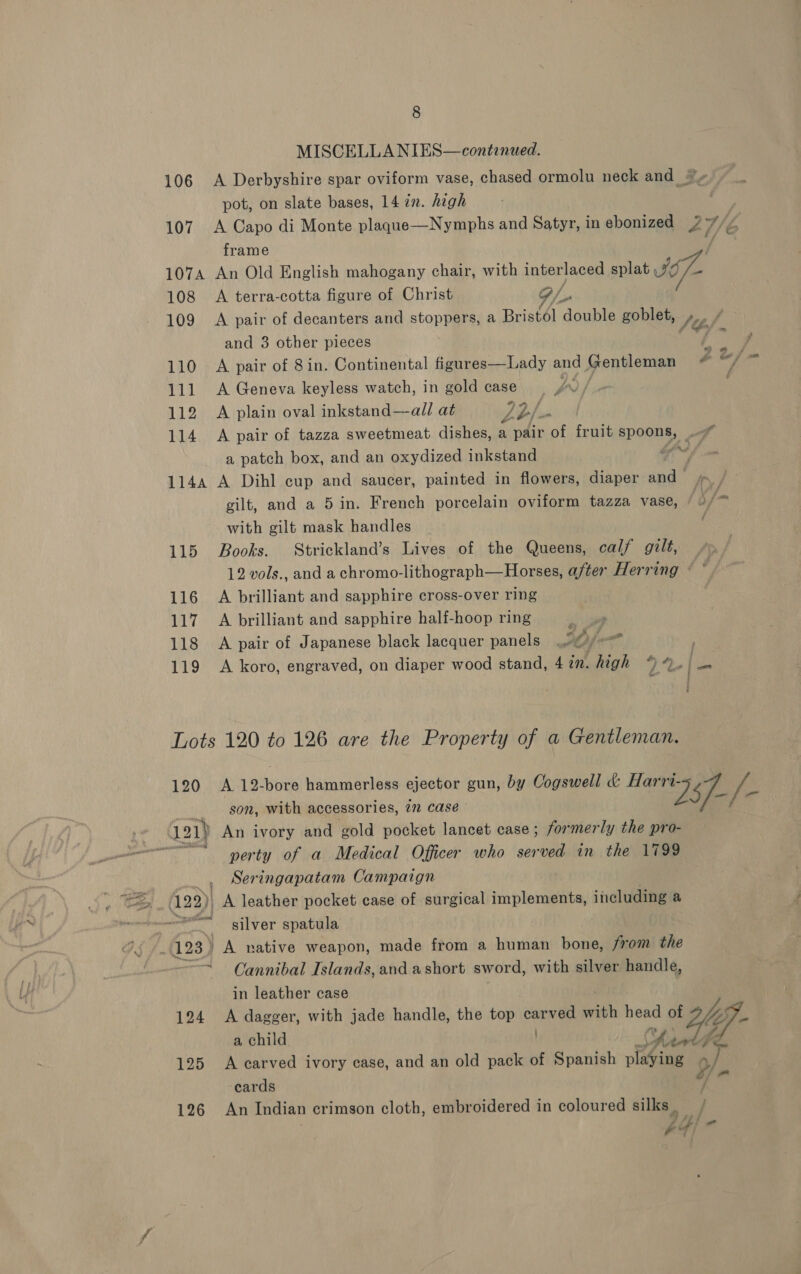 8
MISCELLANIES—continued.
106 A Derbyshire spar oviform vase, chased ormolu neck and
pot, on slate bases, 14 in. high
107 A Capo di Monte plaque—Nymphs and Satyr, in ebonized 27/6
frame
107A An Old English mahogany chair, with interlaced splat
108 A terra-cotta figure of Christ
109 A pair of decanters and stoppers, a Bristol double goblet,
and 3 other pieces
110 A pair of 8 in. Continental figures—Lady and Gentleman 22/-
111 A Geneva keyless watch, in gold case
112 A plain oval inkstand—all at 22/-
114 A pair of tazza sweetmeat dishes, a pair of fruit spoons,
a patch box, and an oxydized inkstand
114A A Dihl cup and saucer, painted in flowers, diaper and
gilt, and a 5 in. French porcelain oviform tazza vase,
with gilt mask handles
115 Books. Strickland's Lives of the Queens, calf gilt,
12 vols., and a chromo-lithograph—Horses, after Herring
116 A brilliant and sapphire cross-over ring
117 A brilliant and sapphire half-hoop ring
118 A pair of Japanese black lacquer panels
119 A koro, engraved, on diaper wood stand, 4 in. high
Lots 120 to 126 are the Property of a Gentleman.
120 A 12-bore hammerless ejector gun, by Cogswell & Harri-
son, with accessories, in case
121 An ivory and gold pocket lancet case; formerly the pro-
perty of a Medical Officer who served in the 1799
Seringapatam Campaign
122 A leather pocket case of surgical implements, including a
silver spatula
123 A native weapon, made from a human bone, from the
Cannibal Islands, and a short sword, with silver handle,
in leather case
124 A dagger, with jade handle, the top carved with head of
a child
125 A carved ivory case, and an old pack of Spanish playing
cards
126 An Indian crimson cloth, embroidered in coloured silks